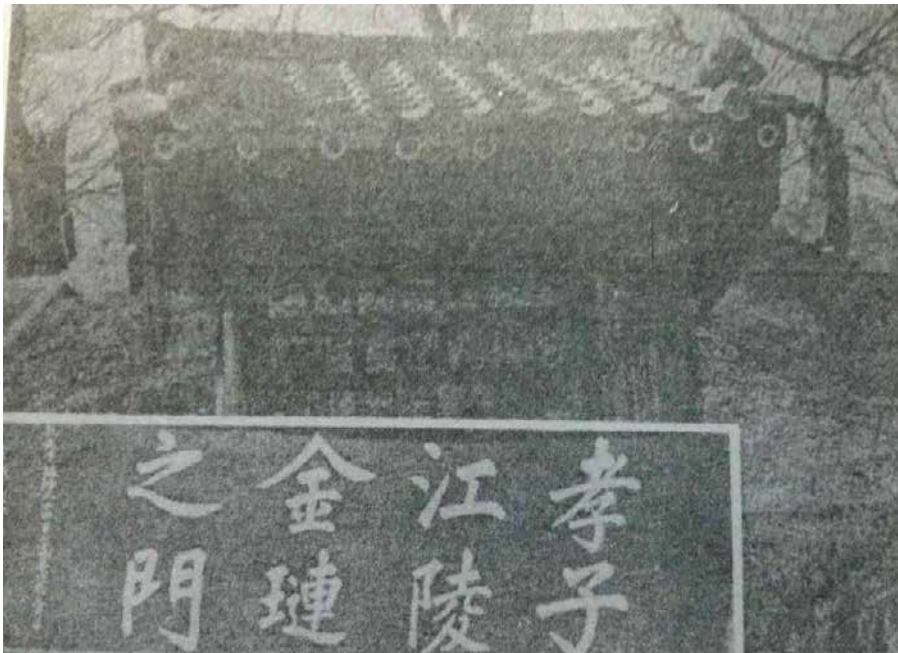 孝子
江陵
金璉
之門